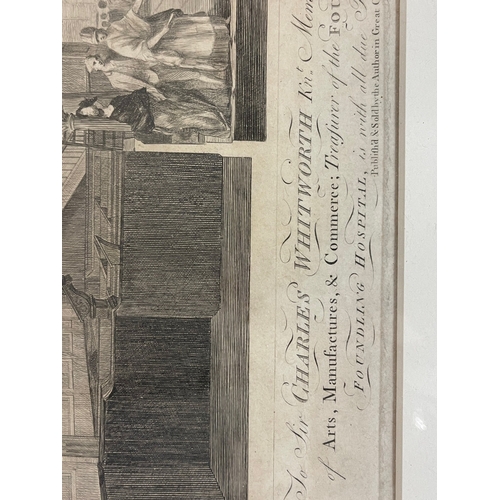 To Sir CHARLES WHITWORTH Knt. Mem
of Arts, Manufactures, & Commerce; Treasurer of the FOU
FOUNDLING HOSPITAL, is with all due
Publish'd & Sold by the Author in Great